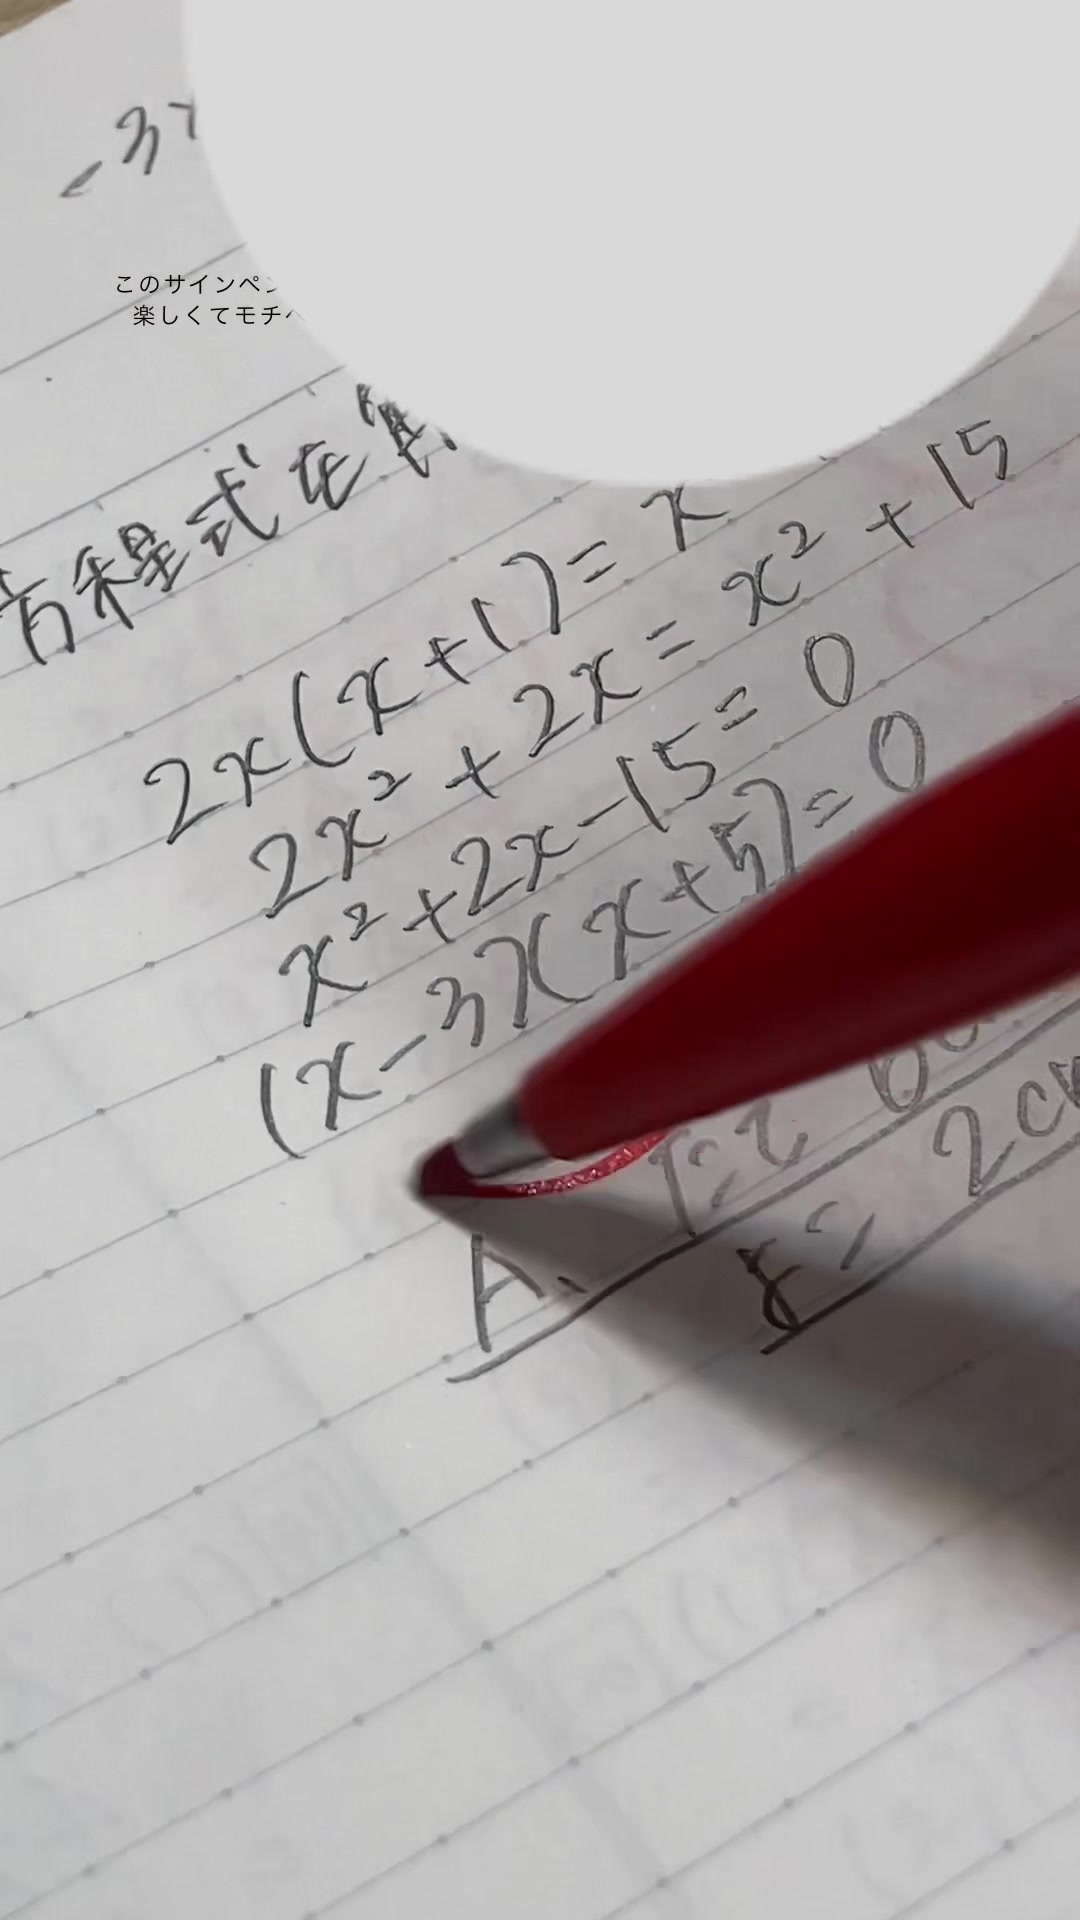 -3x
このサインペン
楽しくてモチベ
方程式を解
2x(x+1)=x
2x²+2x=x²+15
x²+2x-15=0
(x-3)(x+5)=0
A. たて
よこ 2cm